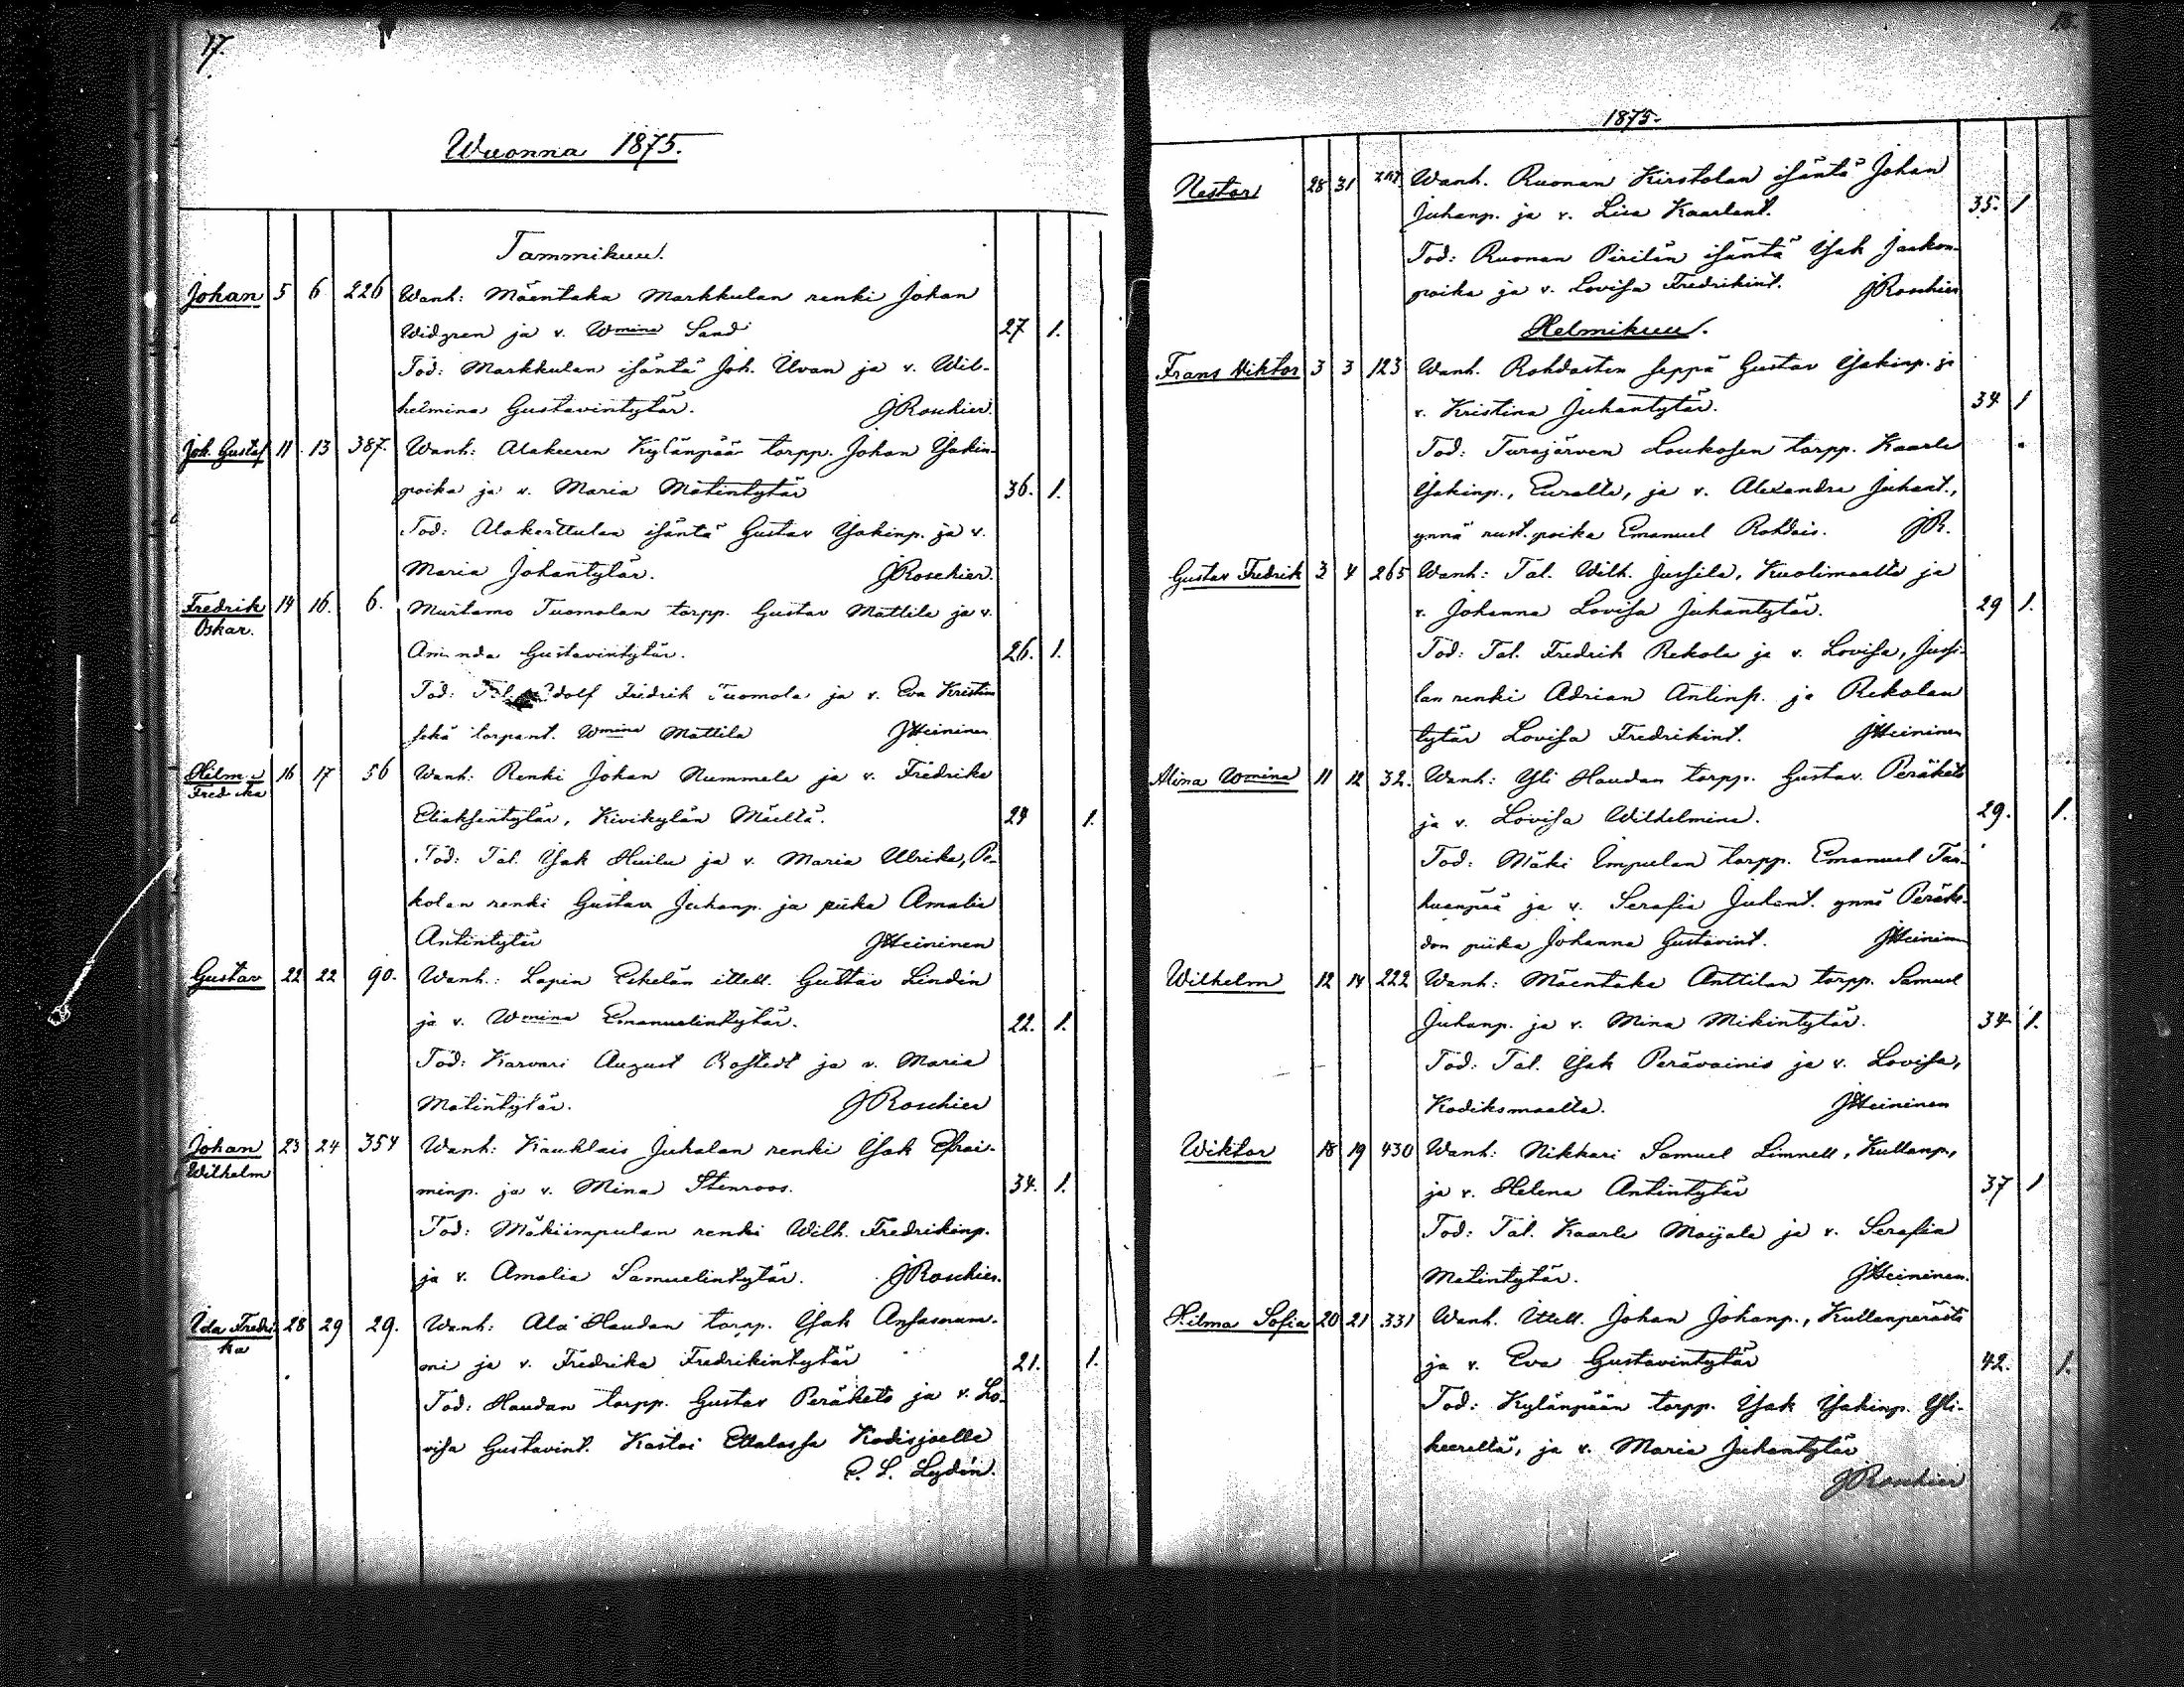 17.
Wuonna 1875.
Tammikuu.
Johan 5 6 226 Wanh: Mäentaka Markkulan renki Johan
Widgren ja v. Wmina Sand 27 1.
Tod: Markkulan isäntä Joh. Uvan ja v. Wil-
helmina Gustavintytär. JRoschier.
Joh. Gustaf 11 13 387. Wanh: Alakeeren Kylänpää torpp. Johan Isakin-
poika ja v. Maria Matintytär 36. 1.
Tod: Alakerttulan isäntä Gustav Isakinp. ja v.
Maria Johantytär. JRoschier.
Fredrik 14 16. 6. Murtamo Tuomolan torpp. Gustav Mattila ja v.
Oskar.
Amanda Gustavintytär. 26. 1.
Tod: Tal. Adolf Fredrik Tuomola ja v. Eva Kristin
sekä torpant. Wmina Mattila JHeininen
Hilma 16 17 56 Wanh: Renki Johan Nummela ja v. Fredrika
Fredrika
Eliaksentytär, Kivikylän Mäeltä. 24 1.
Tod: Tal. Isak Huilu ja v. Maria Ulrika, Pe-
kolan renki Gustav Juhanp. ja piika Amalia
Antintytär JHeininen
Gustav 22 22 90. Wanh: Lapin Eskelän ittell. Gustav Lindén
ja v. Wmina Emanuelintytär. 22. 1.
Tod: Karvari August Rostedt ja v. Maria
Matintytär. JRoschier
Johan 23 24 354 Wanh: Kauklais Juhalan renki Isak Efrai-
Wilhelm
minp. ja v. Mina Stenroos. 34. 1.
Tod: Mäkiimpulan renki Wilh. Fredrikinp.
ja v. Amalia Samuelintytär. JRoschier.
Ida Fredri- 28 29 29. Wanh: Ala Haudan torpp. Isak Ansasnum-
ka
mi ja v. Fredrika Fredrikintytär 21. 1.
Tod: Haudan torpp. Gustav Peräketo ja v. Lo-
visa Gustavint. Kastoi Ettalassa Kodisjoella
E. L. Lydén.
1875.
Nestor 28 31 Wanh. Ruonan Kirstolan isäntä Johan
Juhanp. ja v. Lisa Kaarlent. 35. 1
Tod: Ruonan Pirilän isäntä Isak Jaakon-
poika ja v. Lovisa Fredrikint. JRoschier
Helmikuu.
Frans Viktor 3 3 123 Wanh. Rohdasten seppä Gustav Isakinp. ja
v. Kristina Juhantytär. 34 1
Tod: Turajärven Loukosen torpp. Kaarle
Isakinp., Euralta, ja v. Alexandra Juhant.,
ynnä rust. poika Emanuel Rohdais. JR.
Gustav Fredrik 3 4 265 Wanh: Tal. Wilh. Jussila, Kuolimaalta ja
v. Johanna Lovisa Juhantytär. 29 1.
Tod: Tal. Fredrik Rekola ja v. Lovisa, Jussi-
lan renki Adrian Antinp. ja Rekolan
tytär Lovisa Fredrikint. JHeininen
Alina Wmina 11 12 32. Wanh: Yli Haudan torpp. Gustav. Peräketo
ja v. Lovisa Wilhelmina. 29. 1.
Tod: Mäki Impulan torpp. Emanuel Tar-
huanpää ja v. Serafia Juhant. ynnä Peräke-
don piika Johanna Gustavint. JHeininen
Wilhelm 12 14 222 Wanh: Mäentaka Anttilan torpp. Samuel
Juhanp. ja v. Mina Mikintytär. 34 1.
Tod: Tal. Isak Perävainio ja v. Lovisa,
Kodiksmaalta. JHeininen
Wiktor 18 19 430 Wanh: Nikkari Samuel Limnell, Kullanp.,
ja v. Helena Antintytär 37 1
Tod: Tal. Kaarle Maijala ja v. Serafia
Matintytär. JHeininen.
Hilma Sofia 20 21 331 Wanh. Ittell. Johan Johanp., Kullanperästä
ja v. Eva Gustavintytär 42. 1.
Tod: Kylänpään torpp. Isak Isakinp. Yli-
keereltä, ja v. Maria Juhantytär
JRoschier